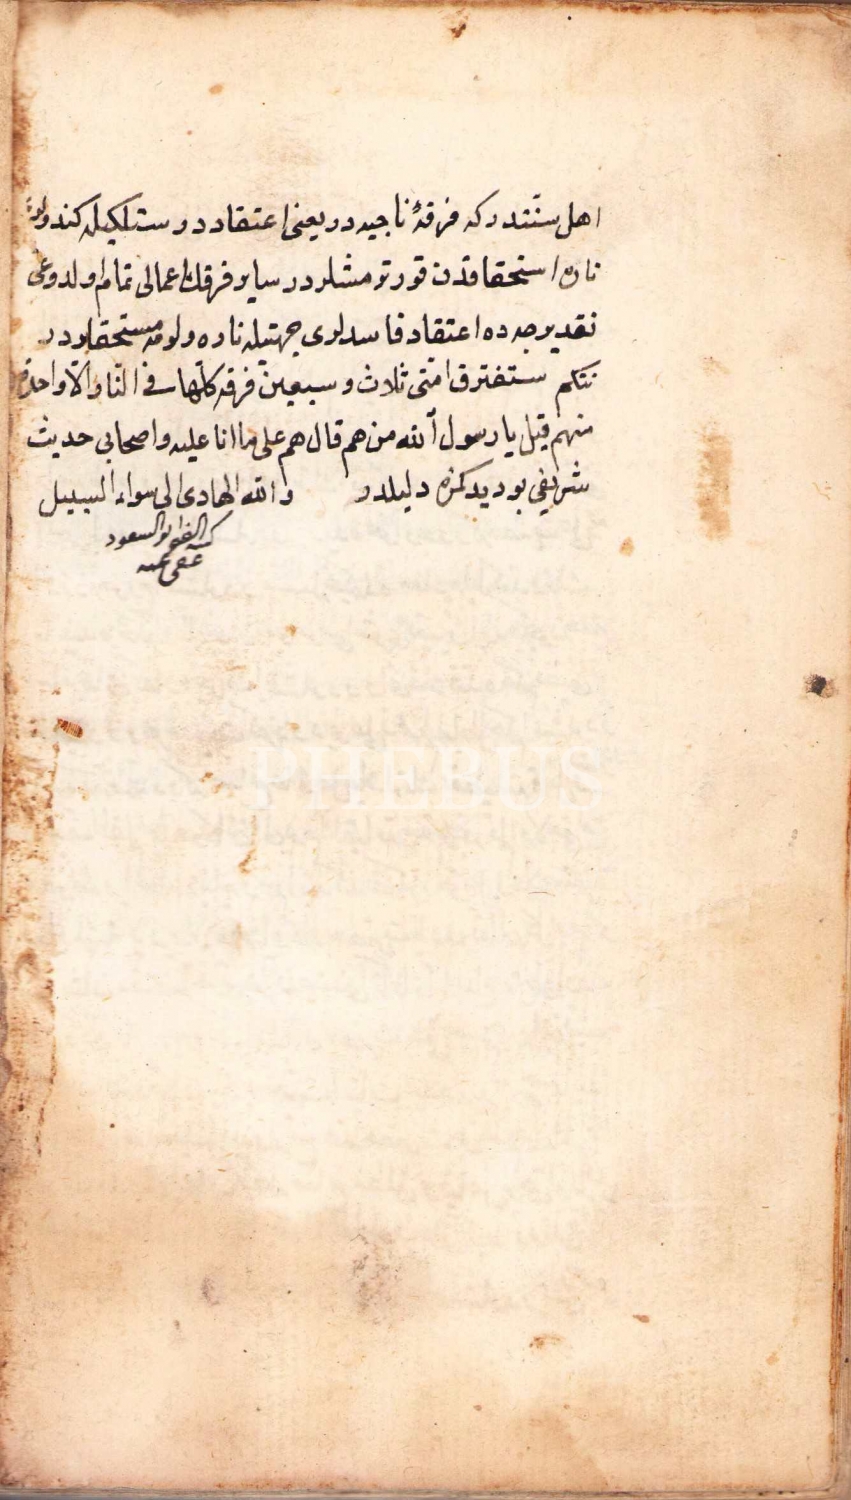 اهل سنتدر كه فرقۀ ناجيه در يعنى اعتقاد درستلكيله كندولرى
ناره استحقاقدن قورتومشلردر سایر فرقلك اعمالى تمام اولدوغى
تقديرجه ده اعتقاد فاسدلرى جهتيله ناره دخولـه مستحقلردر
نتكم ستفترق امتى ثلاث و سبعين فرقه كلها فى النار الا واحدة
منهم قيل يا رسول الله من هم قال هم على ما انا عليه واصحابى حديث
شريفى بو ديدكمزه دليلدر والله الهادى الى سواء السبيل
كتبه الفقير ابو السعود
عفى عنه
PHEBUS